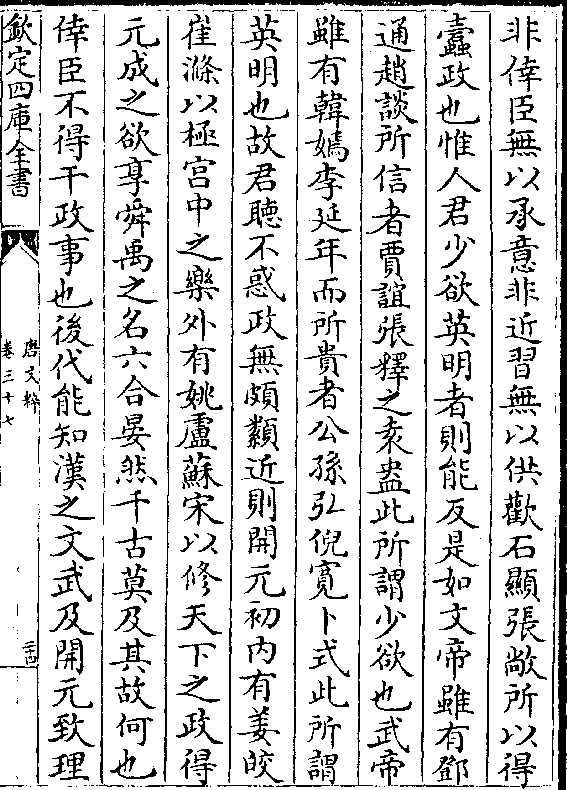 非倖臣無以承意非近習無以供歡石顯張敞所以得
蠹政也惟人君少欲英明者則能反是如文帝雖有鄧
通趙談所信者賈誼張釋之袁盎此所謂少欲也武帝
雖有韓嫣李延年而所貴者公孫弘倪寬卜式此所謂
英明也故君聽不惑政無頗纇近則開元初内有姜皎
崔滌以極宫中之樂外有姚盧蘇宋以修天下之政得
元成之欲享舜禹之名六合晏然千古莫及其故何也
倖臣不得干政事也後代能知漢之文武及開元致理
欽定四庫全書
唐文粹
卷三十七
三四